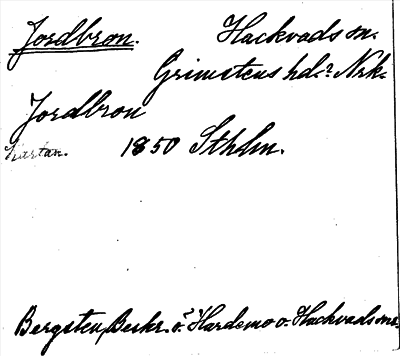 Jordbron. Hackvads sn.
Grimstens hd. Nrk.
Jordbron
kartan. 1850 Sthlm.
Bergsten, Beskr. ö. Hardemo o. Hackvads sns